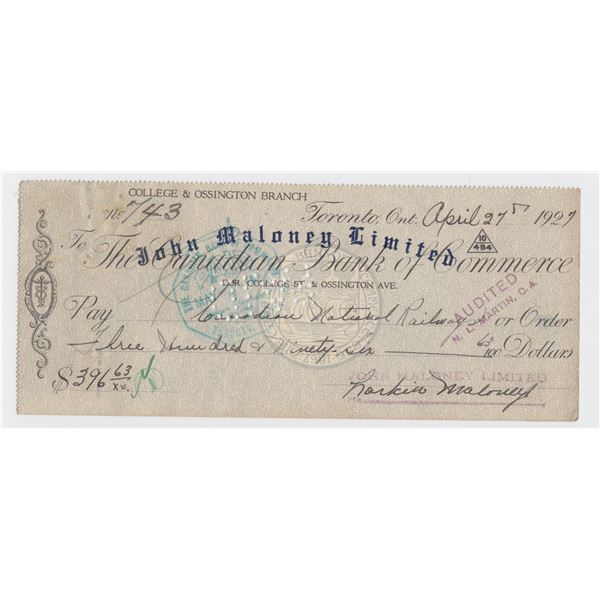 COLLEGE & OSSINGTON BRANCH
No 743
Toronto, Ont. April 27th 1927
John Maloney Limited
10
484
To The Canadian Bank of Commerce
COR. COLLEGE ST. & OSSINGTON AVE.
AUDITED
N. L. MARTIN, C.A.
Pay Canadian National Railways or Order
Three Hundred & Ninety-Six 63/100 Dollars
$396 63/xx
JOHN MALONEY LIMITED
Larkin Maloney